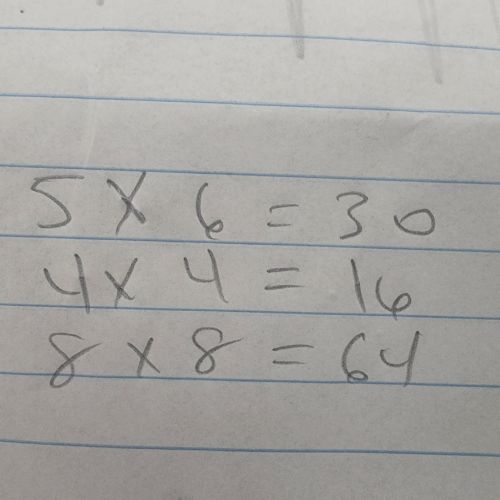 5 X 6 = 30
4 x 4 = 16
8 x 8 = 64